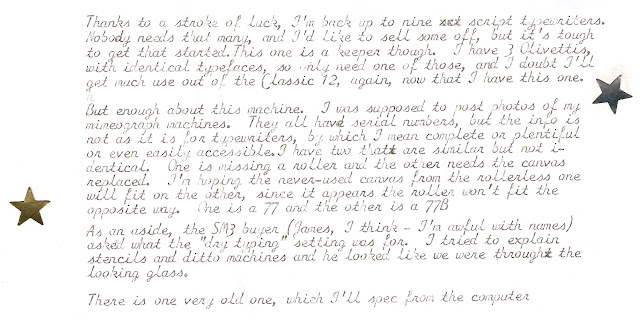 Thanks to a stroke of luck, I'm back up to nine xxt script typewriters.
Nobody needs that many, and I'd like to sell some off, but it's tough
to get that started.This one is a keeper though. I have 3 Olivettis,
with identical typefaces, so only need one of those, and I doubt I'll
get much use out of the Classic 12, again, now that I have this one.
But enough about this machine. I was supposed to post photos of my
mimeograph machines. They all have serial numbers, but the info is
not as it is for typewriters, by which I mean complete or plentiful
or even easily accessible.I have two that are similar but not i-
dentical. One is missing a roller and the other needs the canvas
replaced. I'm hoping the never-used canvas from the rollerless one
will fit on the other, since it appears the roller won't fit the
opposite way. One is a 77 and the other is a 77B
As an aside, the SM3 buyer (James, I think - I'm awful with names)
asked what the "dry typing" setting was for. I tried to explain
stencils and ditto machines and he looked like we were through the
looking glass.
There is one very old one, which I'll spec from the computer